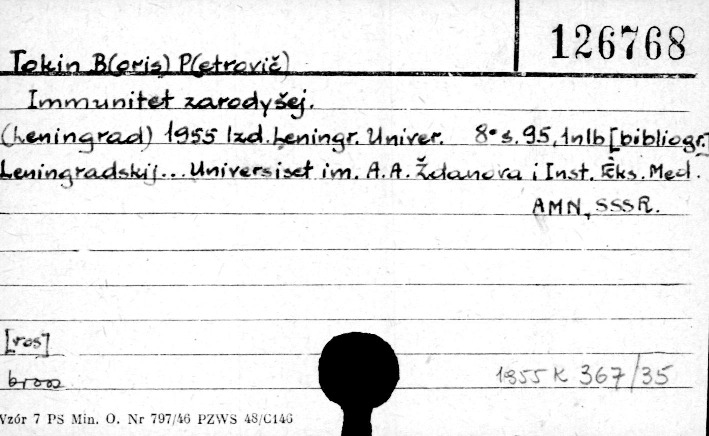 126768
Tokin B(oris) P(etrovič)
Immunitet zarodyšej.
(Leningrad) 1955 Izd. Leningr. Univer. 8° s. 95, 1nlb [bibliogr.]
Leningradskij... Universiset im. A. A. Ždanova i Inst. Èks. Med.
AMN, SSSR.
[ros]
brosz
1955 K 367/35
Wzór 7 PS Min. O. Nr 797/46 PZWS 48/C146